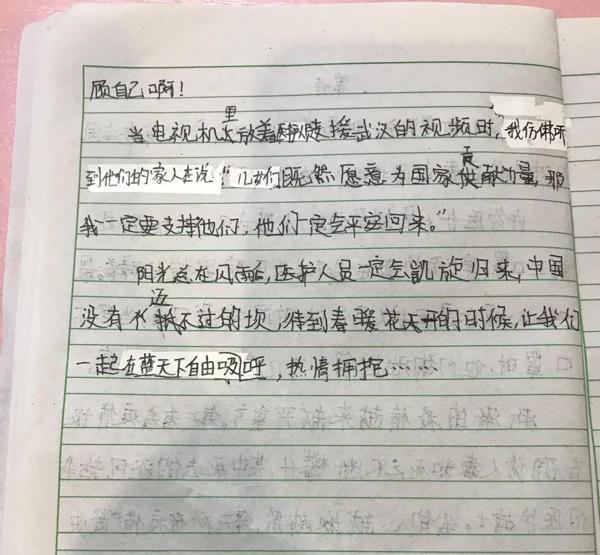 顾自己啊！
当电视机里放着援武汉的视频时，我仿佛听
到他们的家人在说：“儿女们既然愿意为国家贡献力量，那
我一定要支持他们，他们定会平安回来。”
阳光总在风雨后，医护人员一定会凯旋归来，中国
没有迈不过的坝，待到春暖花开的时候，让我们
一起在蓝天下自由吸呼，热情拥抱……